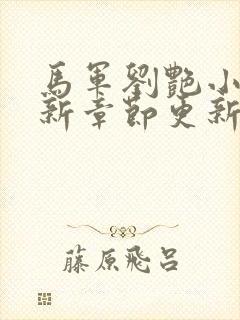 馬軍劉艷小
新章節更新
藤原飛呂